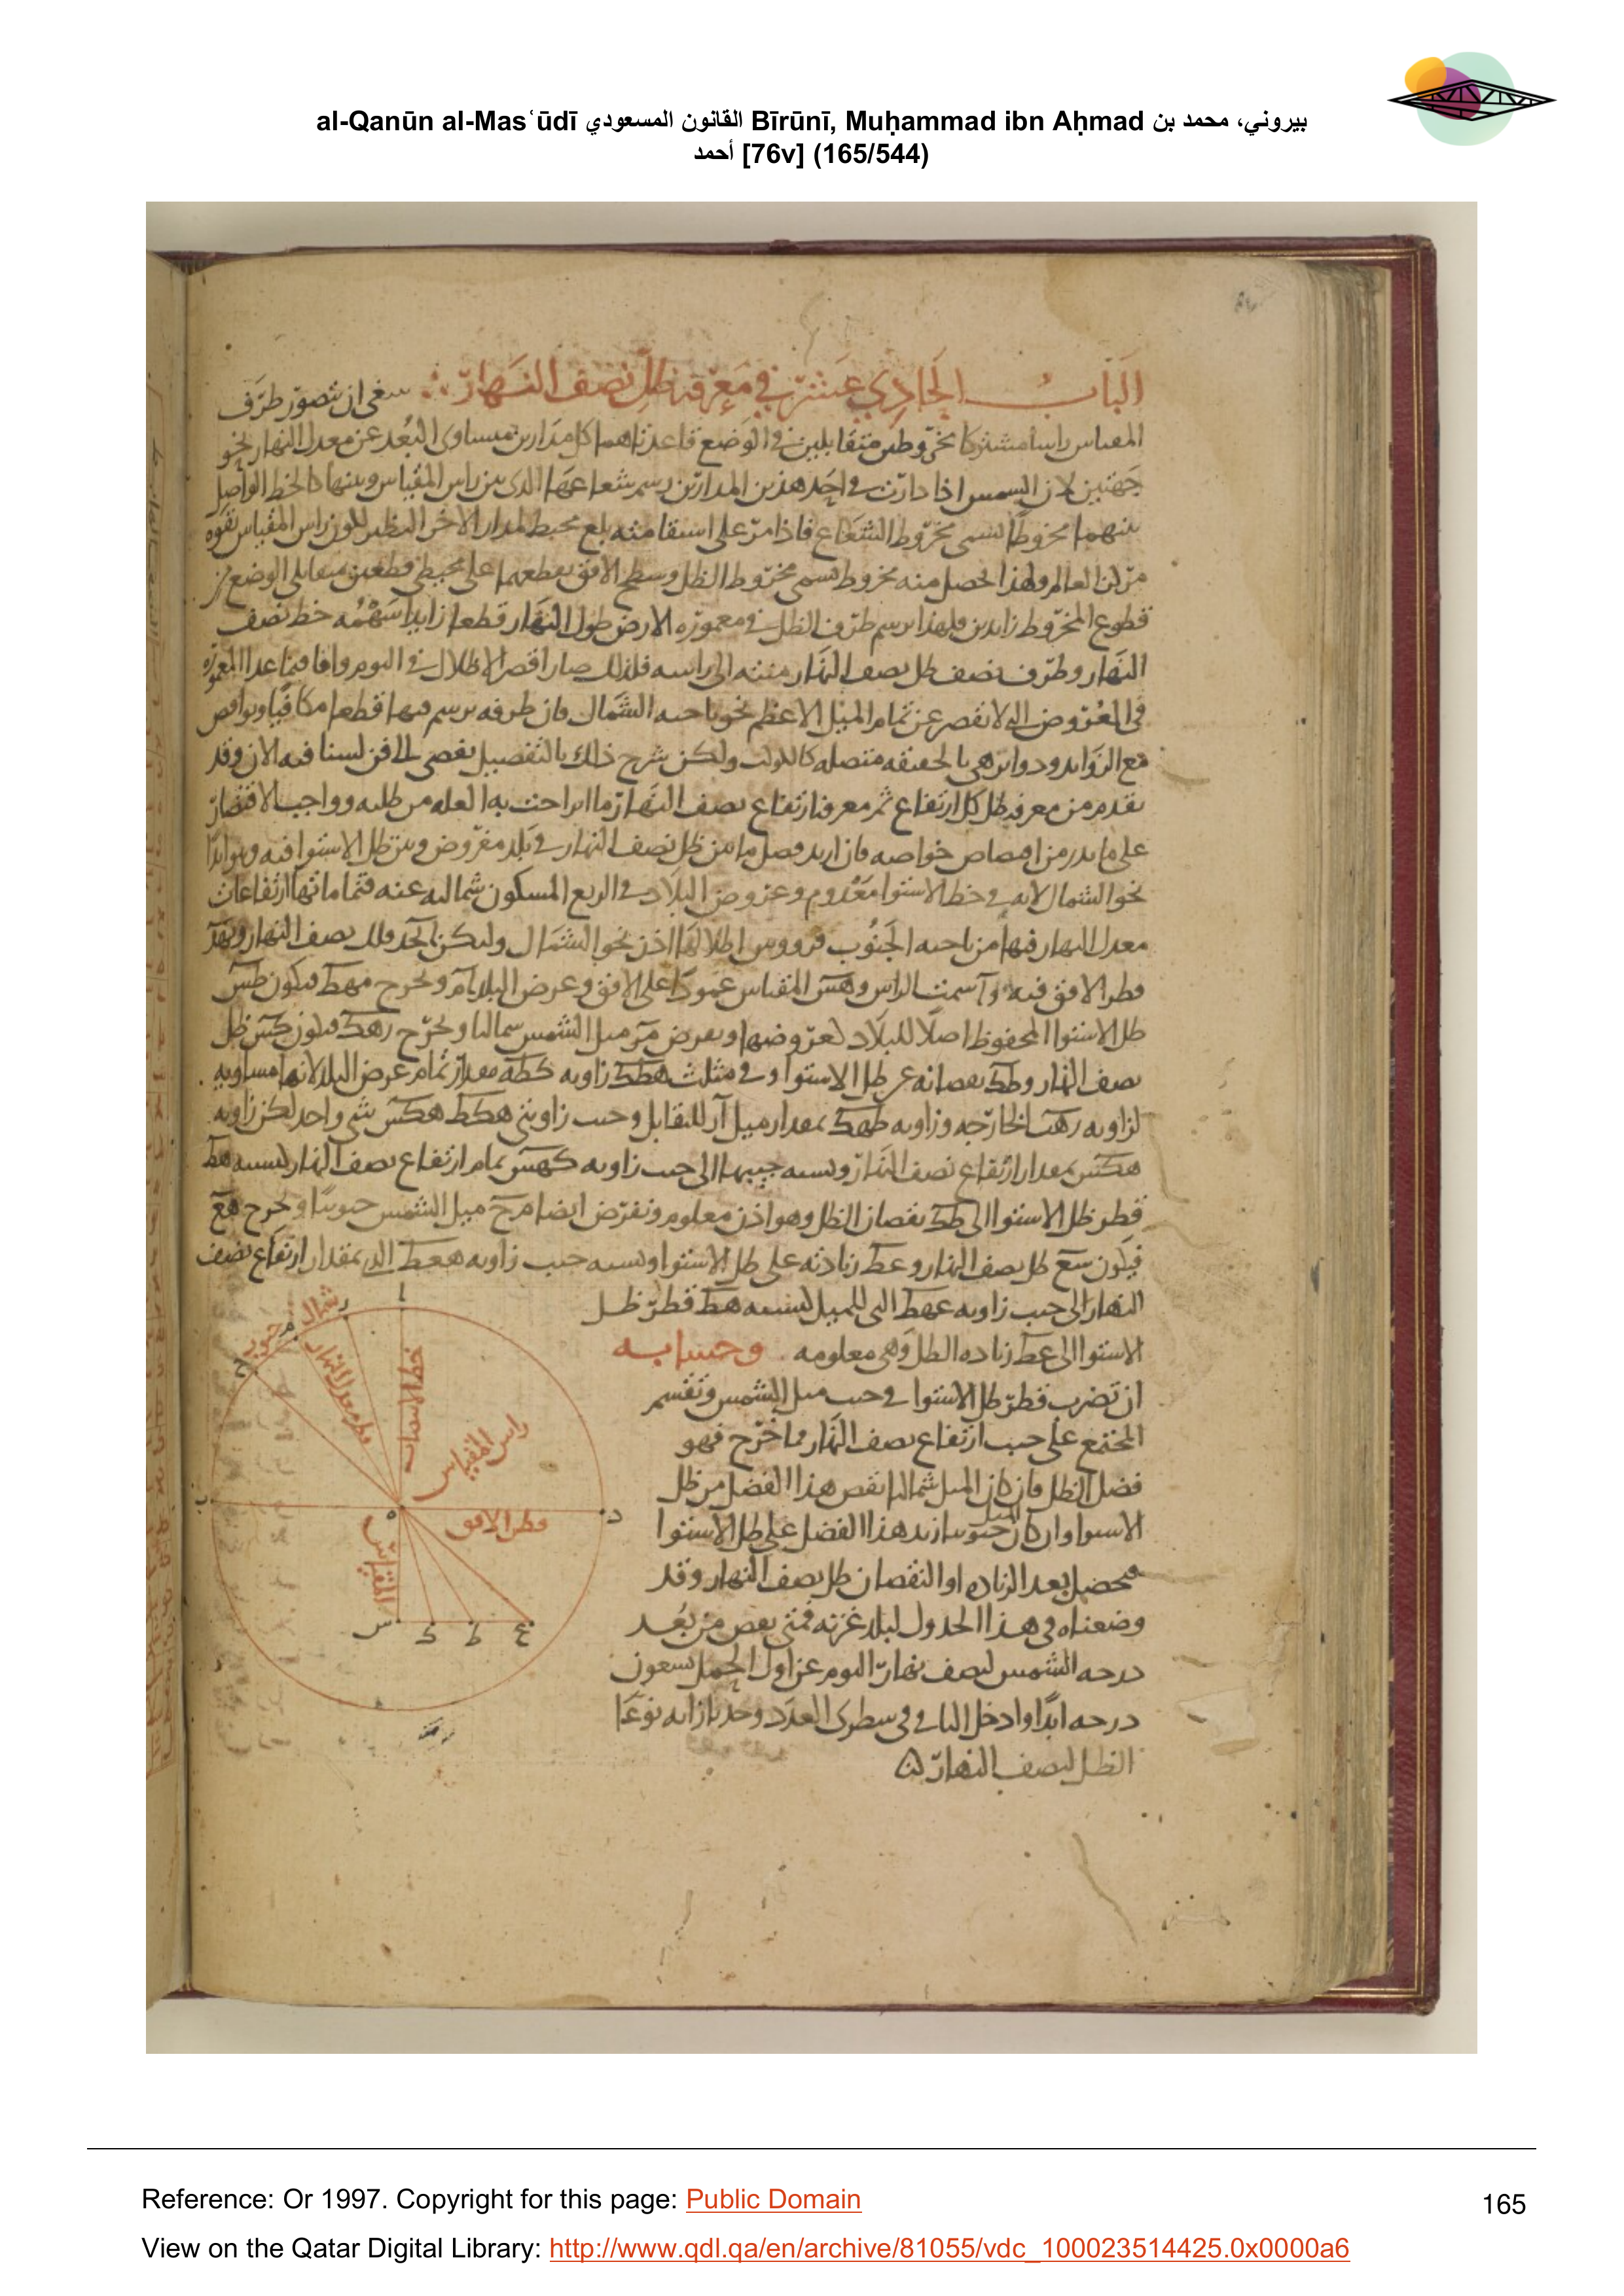 al-Qanūn al-Masʿūdī القانون المسعودي Bīrūnī, Muḥammad ibn Aḥmad بيروني، محمد بن
أحمد [76v] (165/544)
الباب الحادي عشر في معرفة ظل نصف النهار ينبغي ان نتصور طرف
المقياس راسا مشتركا لمخروطين متقابلين في الوضع قاعدتاهما كل مدارين متساوى البعد عن معدل النهار نحو
جهتين لان الشمس اذا دارت في احد هذين المدارين رسم شعاعها الذى بين راس المقياس وبينها كالخط الواصل
بينهما مخروطا يسمى مخروط الشعاع فاذا مر على استقامته بلغ محيط المدار الاخر النظير لكون راس المقياس بقوة
مركز العالم ولهذا يحصل منه مخروط يسمى مخروط الظل وسطح الافق يقطعهما على محيطى قطعين متقابلى الوضع من
قطوع المخروط زايدين فلهذا يرسم طرف الظل في معمورة الارض طول النهار قطعا زايدا سهمه خط نصف
النهار وطرف نصف ظل نصف النهار منته الى راسه فلذلك صار اقصر الاظلال في اليوم واما فيما عدا المعمورة
في العروض التى لا تقصر عن تمام الميل الاعظم نحو ناحية الشمال فان طرفه يرسم فيها قطعا مكافيا ونواقص
مع الزوايد ودواير هي بالحقيقة متصلة ولكن شرح ذلك بالتفصيل يفضى الى فن لسنا فيه الان وقد
تقدم من معرفة ظل كل ارتفاع ثم معرفة ارتفاع نصف النهار ما ازاحت به العلة من طلبه وواجب الاقتصار
على ما من خواصه فان اريد فصل ما بين ظل نصف النهار في بلد مفروض وبين ظل الاستوا فيه وهو ابدا
نحو الشمال لانه في خط الاستوا معدوم وعروض البلاد في الربع المسكون شمالية عنه فتماماتها ارتفاعات
معدل النهار فيها من ناحية الجنوب فرووس اظلالها اذن نحو الشمال وليكن ابجد فلك نصف النهار وبهد
قطر الافق فيه وا سمت الراس وهس المقياس عمودا على الافق وعرض البلد ام ونخرج مهط فيكون طس
ظل الاستوا المحفوظ اصلا للبلاد لعروضها ونفرض مر ميل الشمس شماليا ونخرج رهك فيكون كس ظل
نصف النهار وطك نقصانه عن ظل الاستوا وفي مثلث هطك زاوية كطه مقدار تمام عرض البلد لانها مساوية
لزاوية رهب الخارجة وزاوية طهك بمقدار ميل ار للتقابل وجيب زاويتى هكط هكس شى واحد لكن زاوية
هكس بمقدار ارتفاع نصف النهار ونسبة جيبها الى جيب زاوية كهس تمام ارتفاع نصف النهار كنسبة هط
قطر ظل الاستوا الى طك نقصان الظل وهو اذن معلوم ونفرض ايضا مح ميل الشمس جنوبيا ونخرج حهع
فيكون سع ظل نصف النهار وعط زيادته على ظل الاستوا ونسبة جيب زاوية هعط التى بمقدار ارتفاع نصف
النهار الى جيب زاوية عهط التى للميل كنسبة هط قطر ظل
الاستوا الى عط زيادة الظل وهي معلومة وحسابه
ان تضرب قطر ظل الاستوا في جيب ميل الشمس وتقسم
المجتمع على جيب ارتفاع نصف النهار فما خرج فهو
فضل الظل فان كان الميل شماليا نقص هذا الفضل من ظل
الاستوا وان كان الميل جنوبيا زيد هذا الفضل على ظل الاستوا
فيحصل بعد الزيادة او النقصان ظل نصف النهار وقد
وضعناه في هذا الجدول لبلد غزنة فمتى نقص من بعد
درجة الشمس لنصف نهار اليوم عن اول الحمل تسعون
درجة ابدا وادخل الباقى في سطرى العدد وجد بازايه نوعا
الظل لنصف النهار
شمال
جنوب
ا
ر
م
ح
قطر معدل النهار
راس المقياس
ب
ه
د
قطر الافق
المقياس
س
ك
ط
ع
Reference: Or 1997. Copyright for this page: Public Domain
165
View on the Qatar Digital Library: http://www.qdl.qa/en/archive/81055/vdc_100023514425.0x0000a6